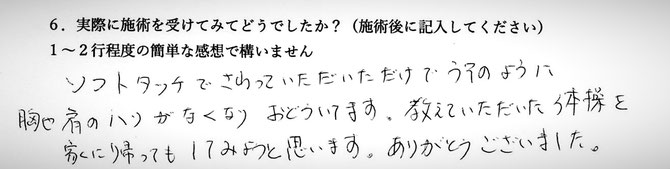 ６．実際に施術を受けてみてどうでしたか？（施術後に記入してください）
１～２行程度の簡単な感想で構いません
ソフトタッチでさわっていただいただけでウソのように
胸や肩のハリがなくなりおどろいてます。教えていただいた体操を
家に帰ってもしてみようと思います。ありがとうございました。